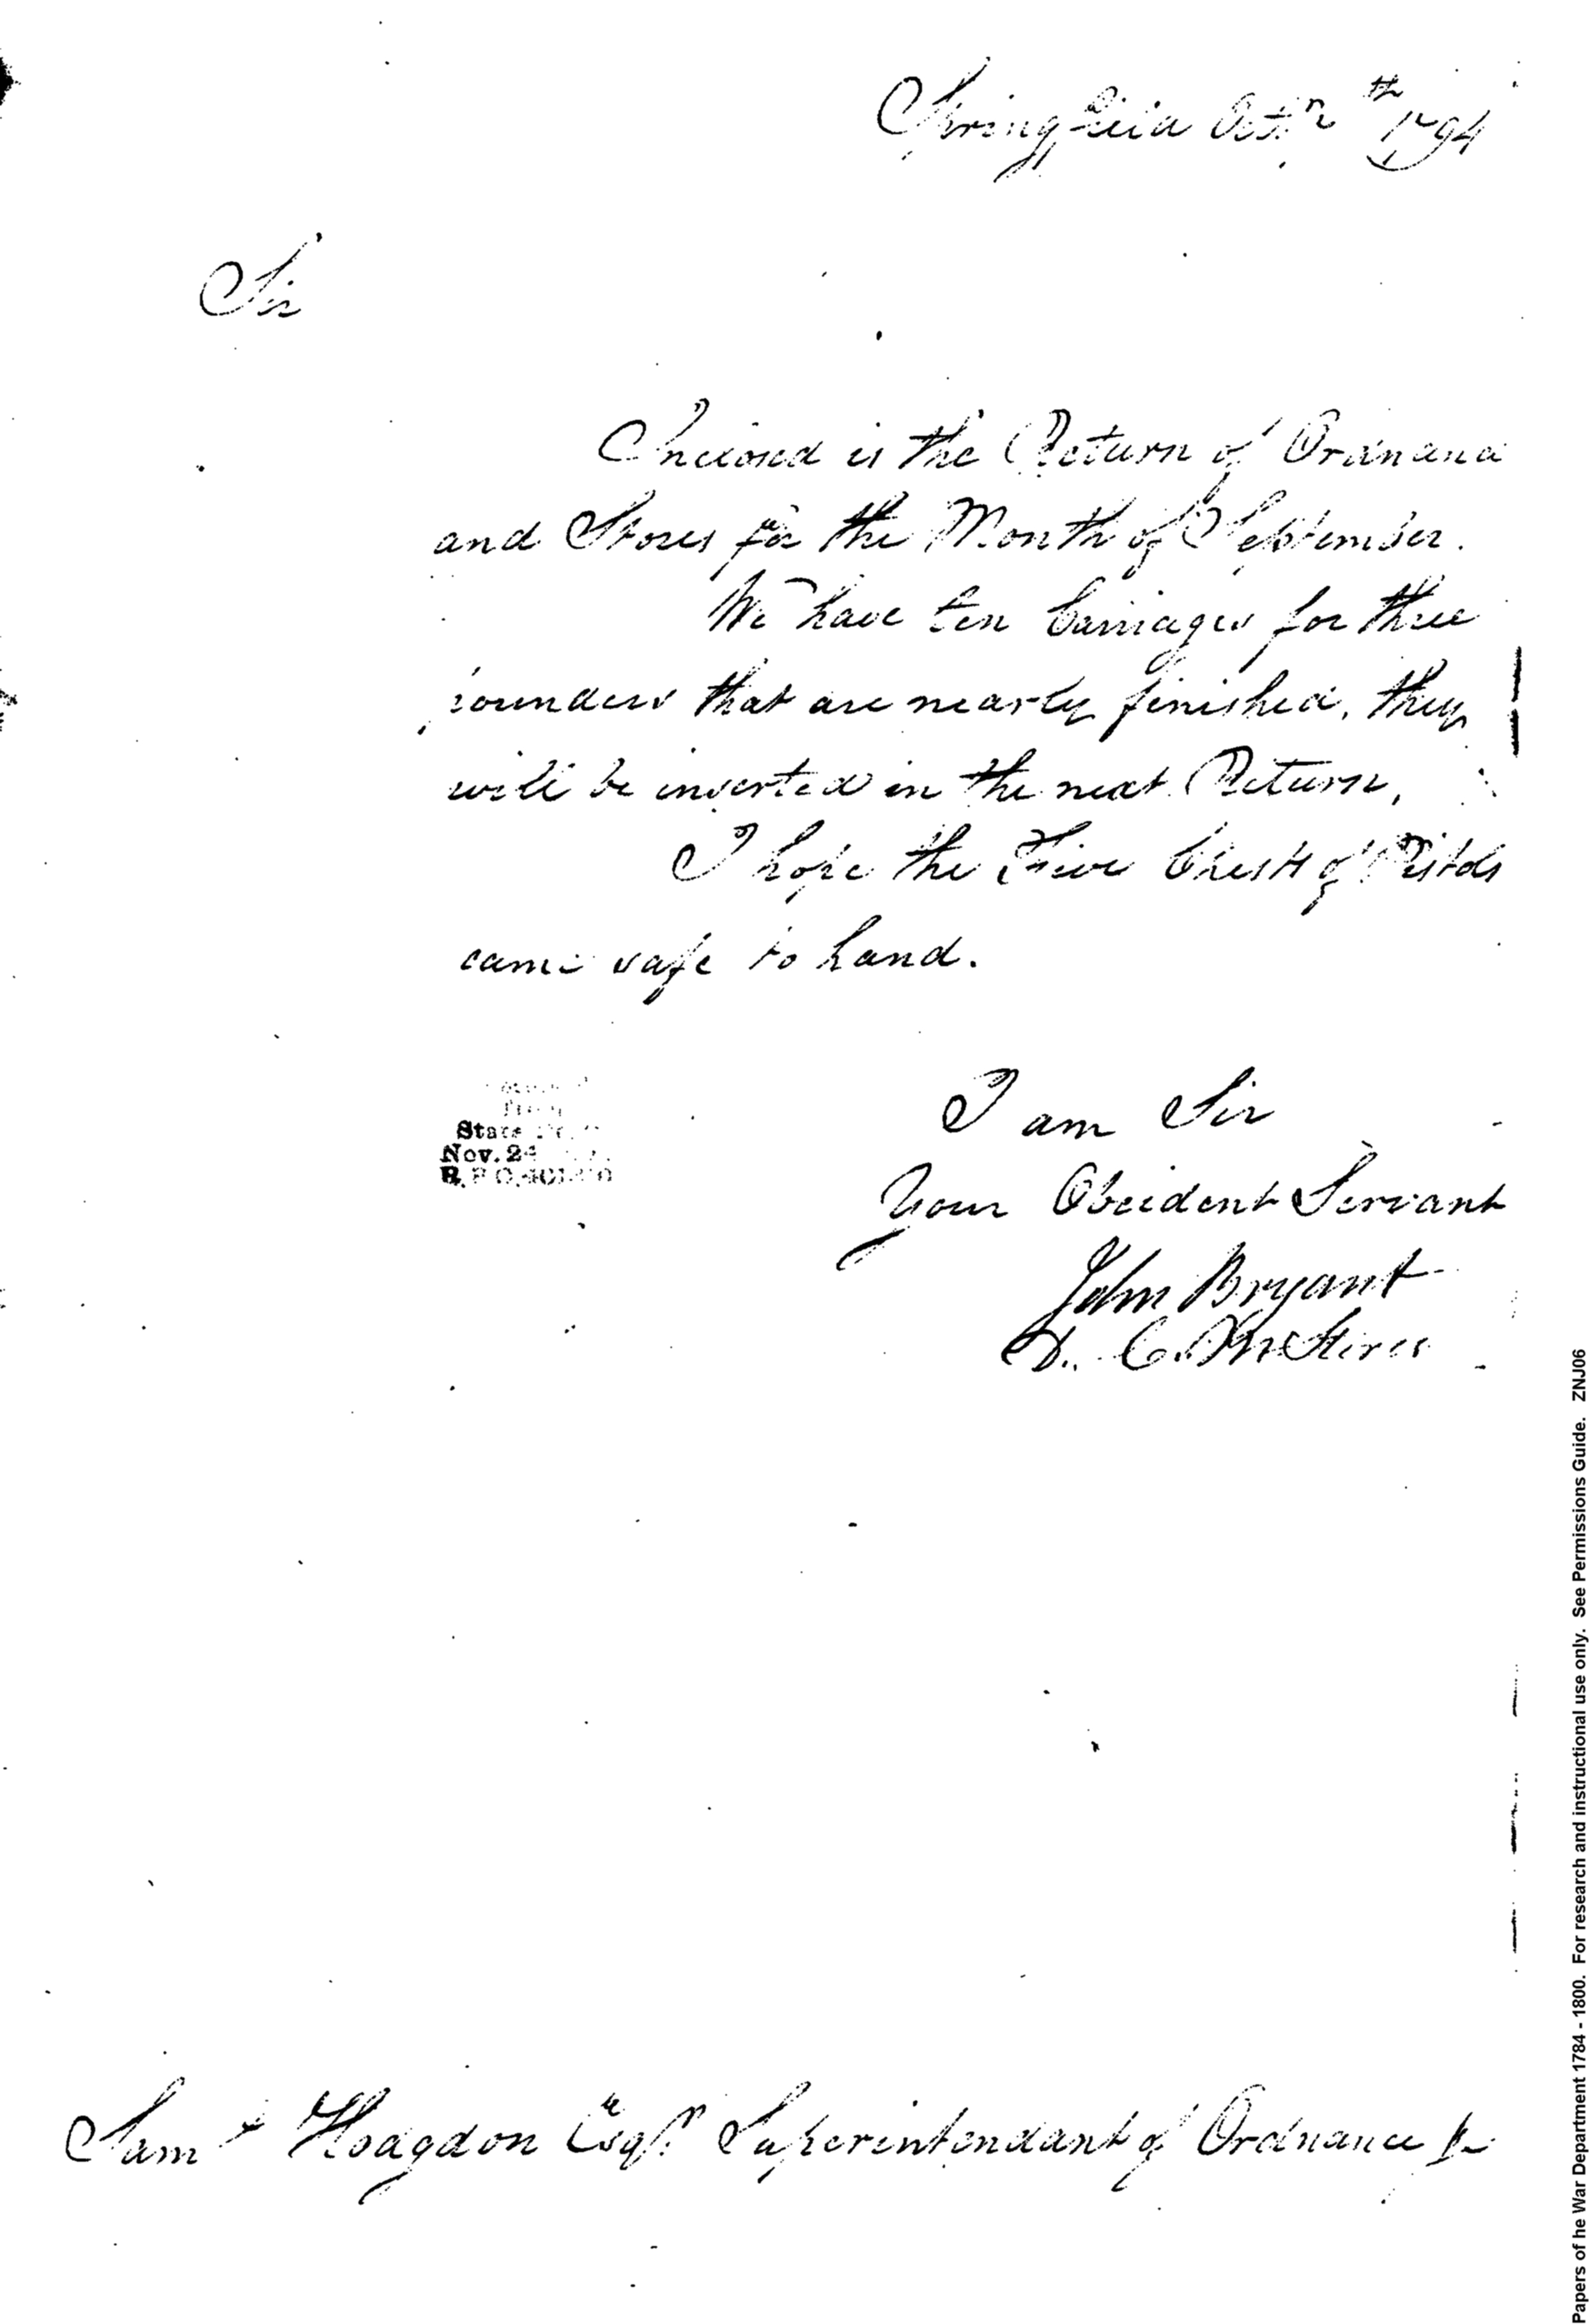 Springfield Octr. 2th 1794
Sir
Inclosed is the Return of Ordnance
and Stores for the Month of September.
We have ten Carriages for three
pounders that are nearly finished, they
will be inserted in the next Return,
I hope the Five Chests of Pistols
came safe to hand.
I am Sir
Your Obeident Servant
John Bryant
D. C. M Stores
State
Nov. 24
Saml Hodgdon Esqr. Superintendant of Ordnance &c
Papers of he War Department 1784 - 1800. For research and instructional use only. See Permissions Guide. ZNJ06